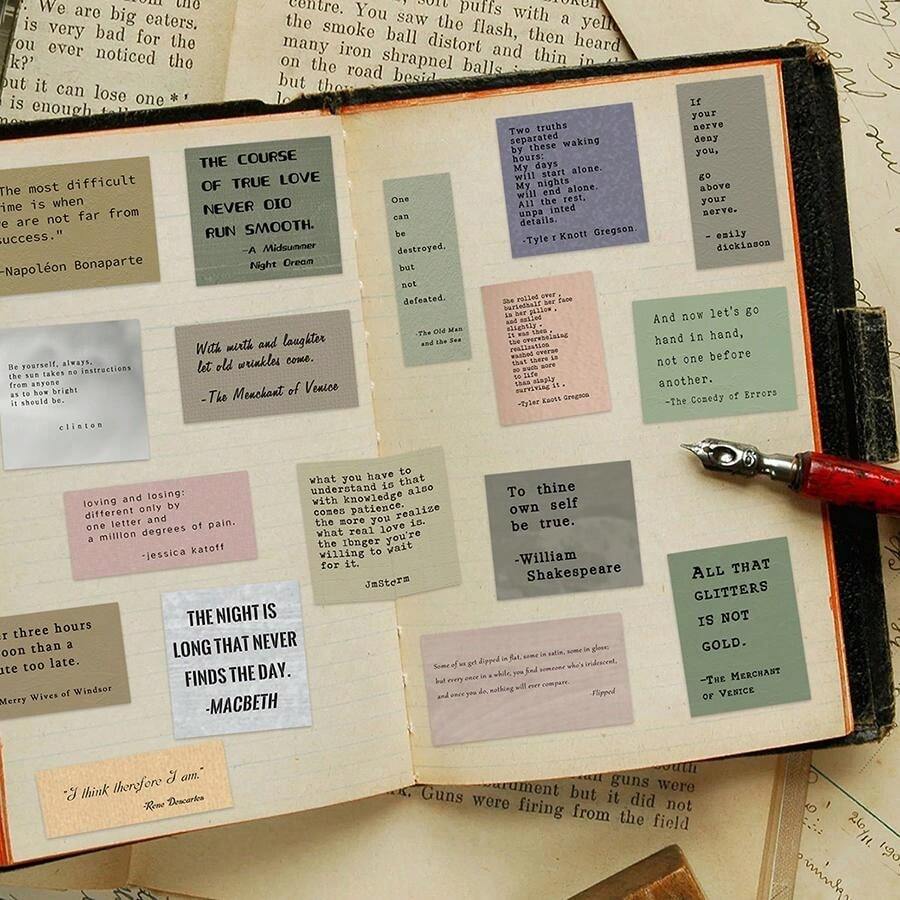 We are big eaters.
is very bad for the
you ever noticed the
k?'
ut it can lose one
is enough
soft puffs with a yell
centre. You saw the flash, then heard
the smoke ball distort and thin
many iron shrapnel balls
on the road besid
but they
The most difficult
ime is when
e are not far from
success."
-Napoléon Bonaparte
THE COURSE
OF TRUE LOVE
NEVER DID
RUN SMOOTH.
-A Midsummer
Night Dream
Be yourself, always,
the sun takes no instructions
from anyone
as to how bright
it should be.
clinton
With mirth and laughter
let old wrinkles come.
-The Menchant of Venice
loving and losing:
different only by
one letter and
a million degrees of pain.
-jessica katoff
what you have to
understand is that
with knowledge also
comes patience.
the more you realize
what real love is.
the lbnger you're
willing to wait
for it.
JmStorm
r three hours
oon than a
ute too late.
Merry Wives of Windsor
THE NIGHT IS
LONG THAT NEVER
FINDS THE DAY.
-MACBETH
"I think therefore I am."
-Rene Descartes
One
can
be
destroyed,
but
not
defeated.
-The Old Man
and the Sea
Two truths
separated
by these waking
hours:
My days
will start alone.
My nights
will end alone.
All the rest,
unpa inted
details.
-Tyle r Knott Gregson.
If
your
nerve
deny
you,
go
above
your
nerve.
- emily
dickinson
She rolled over,
buriedhalf her face
in her pillow,
and smiled
slightly.
It was then,
the overwhelming
realization
washed overme
that there is
so much more
to life
than simply
surviving it.
-Tyler Knott Gregson
And now let's go
hand in hand,
not one before
another.
-The Comedy of Errors
To thine
own self
be true.
-William
Shakespeare
Some of us get dipped in flat, some in satin, some in gloss;
but every once in a while, you find someone who's iridescent,
and once you do, nothing will ever compare.
-Flipped
ALL THAT
GLITTERS
IS NOT
GOLD.
-THE MERCHANT
OF VENICE
south
but it did not
Guns were firing from the field
guns were